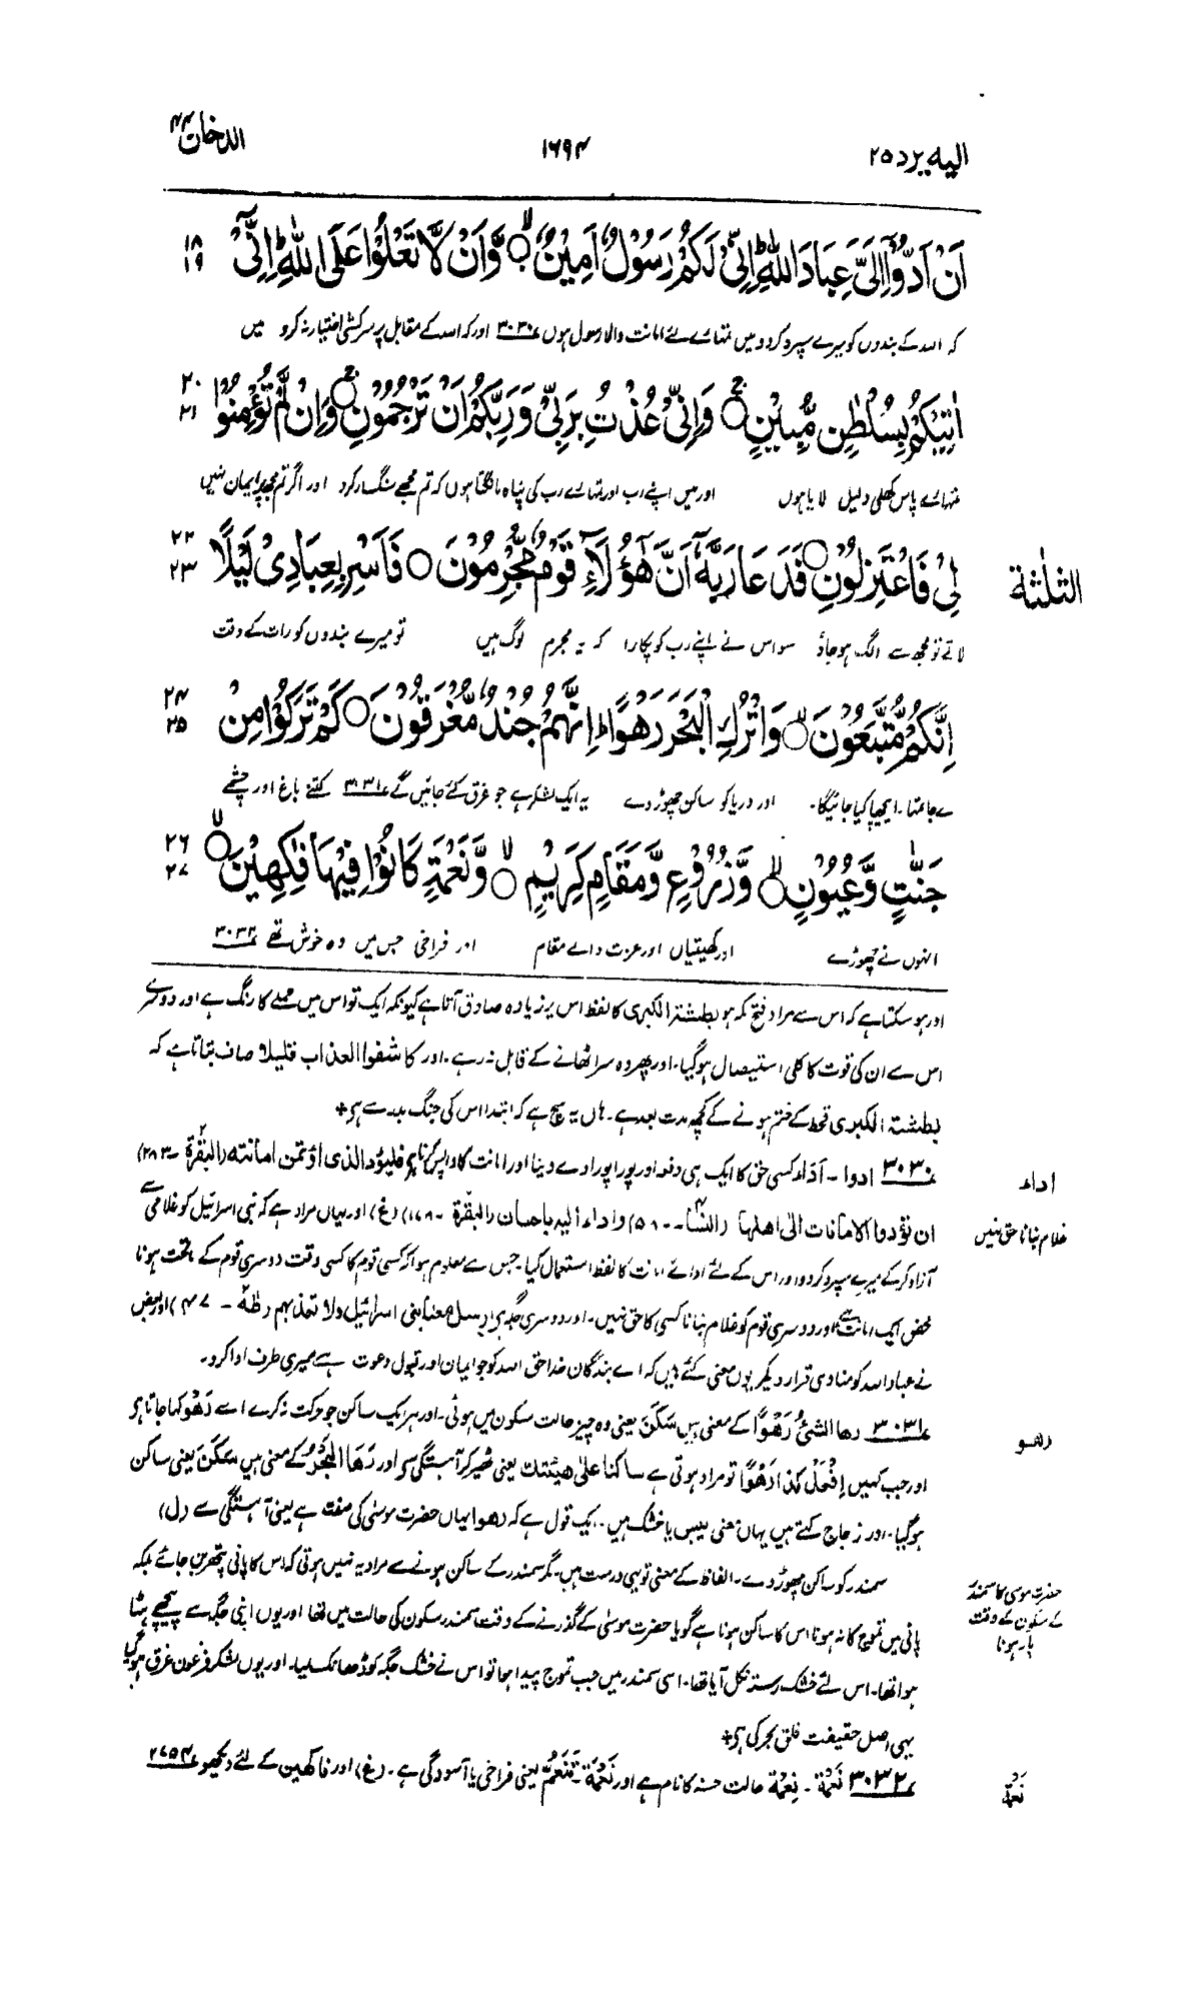 الیہ یرد ۲۵
۱۶۹۴
الدخان ۴۴
اَنْ اَدُّوْۤا اِلَیَّ عِبَادَ اللّٰهِ ؕ اِنِّیْ لَكُمْ رَسُوْلٌ اَمِیْنٌ ۙ وَّ اَنْ لَّا تَعْلُوْا عَلَی اللّٰهِ ؕ اِنِّیْۤ
۱۸
۱۹
کہ اللہ کے بندوں کو میرے سپرد کردو میں تمہارے لئے امانت والا رسول ہوں ۳۰۳۰ اور کہ اللہ کے مقابل پر سرکشی اختیار نہ کرو میں
اٰتِیْكُمْ بِسُلْطٰنٍ مُّبِیْنٍ ۚ وَ اِنِّیْ عُذْتُ بِرَبِّیْ وَ رَبِّكُمْ اَنْ تَرْجُمُوْنِ ۚ وَ اِنْ لَّمْ تُؤْمِنُوْا
۲۰
۲۱
تمہارے پاس کھلی دلیل لایا ہوں اور میں اپنے رب اور تمہارے رب کی پناہ مانگتا ہوں کہ تم مجھے سنگسار کرو اور اگر تم مجھ پر ایمان نہیں
لِیْ فَاعْتَزِلُوْنِ ۝ فَدَعَا رَبَّهٗۤ اَنَّ هٰۤؤُلَآءِ قَوْمٌ مُّجْرِمُوْنَ ۝ فَاَسْرِ بِعِبَادِیْ لَیْلًا
۲۲
۲۳
الثلثة
لاتے تو مجھ سے الگ ہو جاؤ سو اس نے اپنے رب کو پکارا کہ یہ مجرم لوگ ہیں تو میرے بندوں کو رات کے وقت
اِنَّكُمْ مُّتَّبَعُوْنَ ۙ وَ اتْرُكِ الْبَحْرَ رَهْوًا ؕ اِنَّهُمْ جُنْدٌ مُّغْرَقُوْنَ ۝ كَمْ تَرَكُوْا مِنْ
۲۴
۲۵
لے جا تمہارا پیچھا کیا جائیگا۔ اور دریا کو ساکن چھوڑ دے یہ ایک لشکر ہے جو غرق کئے جائیں گے ۳۰۳۱ کتنے باغ اور چشمے
جَنّٰتٍ وَّ عُیُوْنٍ ۙ وَّ زُرُوْعٍ وَّ مَقَامٍ كَرِیْمٍ ۙ وَّ نَعْمَةٍ كَانُوْا فِیْهَا فٰكِهِیْنَ ۙ
۲۶
۲۷
انہوں نے چھوڑے اور کھیتیاں اور عزت والے مقام اور فراخی جس میں وہ خوش تھے ۳۰۳۲
اور ہو سکتا ہے کہ اس سے مراد فتح مکہ ہو بطشة الکبری کا لفظ اس پر زیادہ صادق آتا ہے کیونکہ ایک تو اس میں حملے کا رنگ ہے اور دوسرے
اس سے ان کی قوت کا کلی استیصال ہو گیا۔ اور پھر وہ سر اٹھانے کے قابل نہ رہے۔ اور کاشفوا العذاب قلیلا صاف بتاتا ہے کہ
بطشة الکبری قحط کے ختم ہونے کے کچھ مدت بعد ہے۔ ہاں یہ سچ ہے کہ ابتدا اس کی جنگ بدر سے ہوئی +
۳۰۳۰ ادوا۔ اَدَاء کسی حق کا ایک ہی دفعہ اور پورا پورا دے دینا اور امانت کا واپس کرنا ہے فلیؤد الذی اؤتمن امانته (البقرة ۔ ۲۸۳)
اداء
ان تؤدوا الامانات الی اهلها (النساء۔ ۵۸) واداء الیه باحسان (البقرة ۔ ۱۷۸) (غ) اور یہاں مراد ہے کہ بنی اسرائیل کو غلامی سے
غلام بنانا حق نہیں
آزاد کر کے میرے سپرد کردو اور اس کے لئے ادائے امانت کا لفظ استعمال کیا جس سے معلوم ہوا کہ کسی قوم کا کسی وقت دوسری قوم کے ماتحت ہونا
محض ایک امانت ہے اور دوسری قوم کو غلام بنانا کسی کا حق نہیں۔ اور دوسری جگہ ہے ارسل معنا بنی اسرائیل ولا تعذبهم (طٰهٰ ۔ ۴۷) اور بعض
نے عباد اللہ کو منادی قرار دیکر یوں معنی کئے ہیں کہ اے بندگان خدا حق اللہ کو جو ایمان اور قبول دعوت ہے میری طرف ادا کرو۔
۳۰۳۱ رها الشئُ رَهْوًا کے معنی ہیں سَکَنَ یعنی وہ چیز حالت سکون میں ہوئی۔ اور ہر ایک ساکن جو حرکت نہ کرے اسے رَهْو کہا جاتا ہے
رھو
اور جب کہیں اِفْعَلْ کذا رَهْوًا تو مراد ہوتی ہے ساکنا علی هیئتك یعنی ٹھیر کر آہستگی سے اور رَهَا الْبَحْرُ کے معنی ہیں سَکَنَ یعنی ساکن
ہو گیا۔ اور زجاج کہتے ہیں یہاں معنی یبس یا خشک ہیں۔ ایک قول ہے کہ رھوا یہاں حضرت موسیٰ کی صفت ہے یعنی آہستگی سے (ل)
سمندر کو ساکن چھوڑ دے۔ الفاظ کے معنی تو یہی درست ہیں۔ مگر سمندر کے ساکن ہونے سے مراد یہ نہیں ہوتی کہ اس کا پانی پتھر بن جائے بلکہ
حضرت موسی کا سمندر
کے سکون کے وقت
پار ہونا
پانی میں تموج کا نہ ہونا اس کا ساکن ہونا ہے گویا حضرت موسیٰ کے گذرنے کے وقت سمندر سکون کی حالت میں تھا اور یوں اپنی جگہ سے پیچھے ہٹا
ہوا تھا۔ اس لئے خشک رستہ نکل آیا تھا۔ اسی سمندر میں جب تموج پیدا ہوا تو اس نے خشک جگہ کو ڈھانک لیا۔ اور یوں لشکر فرعون غرق ہو گیا
یہی اصل حقیقت فلق بحر کی ہے +
۳۰۳۲ نَعْمَة۔ نِعْمَة حالت حسنہ کا نام ہے اور نَعْمَة تَنَعُّم یعنی فراخی یا آسودگی ہے۔ (غ) اور فاکھین کے لئے دیکھو ۲۷۵۴
نَعْمَة